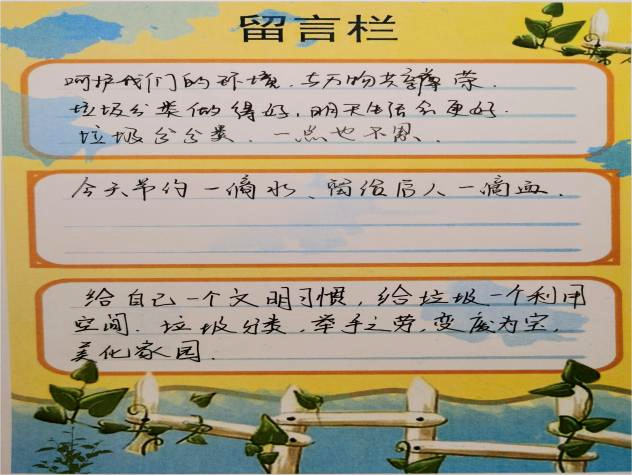 留言栏
呵护我们的环境.与万物共享尊荣.
垃圾分类做得好,明天生活会更好.
垃圾分分类.一点也不累.
今天节约一滴水、留给后人一滴血.
给自己一个文明习惯,给垃圾一个利用
空间.垃圾分类,举手之劳,变废为宝,
美化家园.